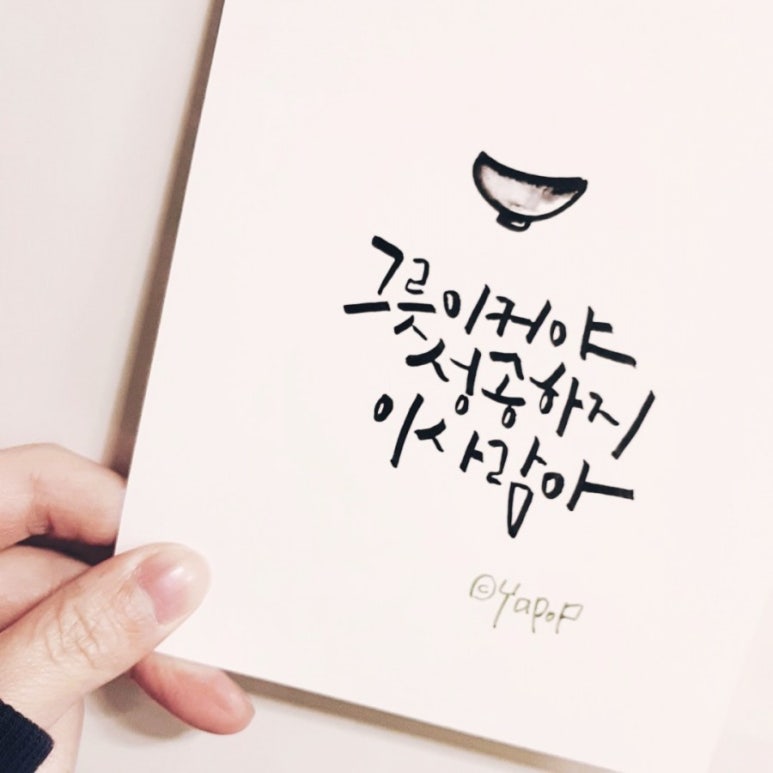 그릇이커야
성공하지
이사람아
©YaPoP